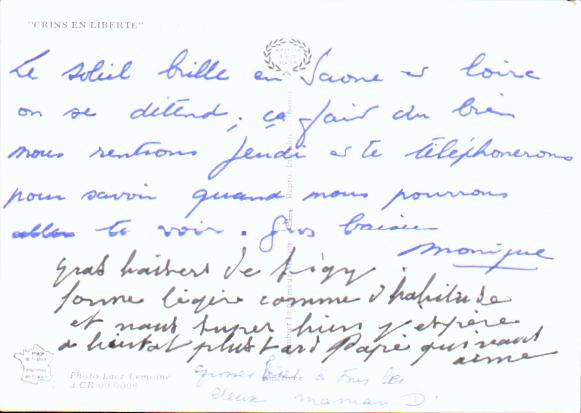 "CRINS EN LIBERTE"
Le soleil brille en Saone et loire
on se détend, ça fait du bien
nous rentrons Jeudi et te téléphonerons
pour savoir quand nous pourrons
aller te voir. Gros baisers
Monique
Gros baisers de
forme légère comme d'habitude
et nous super bien j'espère
a bientot plus tard Papi qui vous
aime
Photo Laez Lemoine
3 CR 99 0098
grosses à tous les
deux maman D'